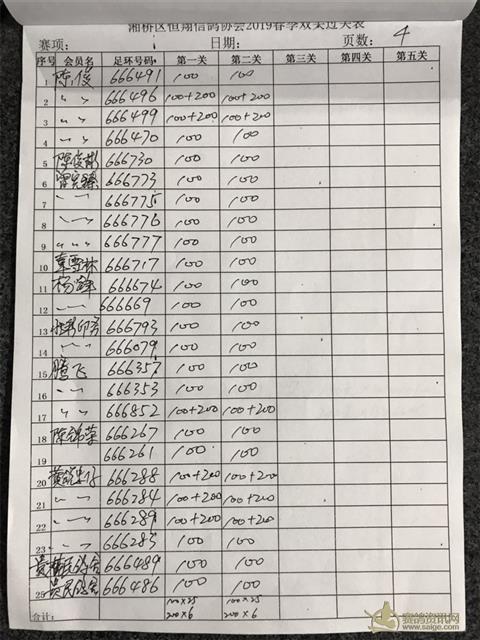 湘桥区恒翔信鸽协会2019春季双关过关表
赛项: 日期: 页数: 4
序号 会员名 足环号码 第一关 第二关 第三关 第四关 第五关
1 陈俊 666491 100 100
2 〃 〃 666496 100+200 100+200
3 〃 〃 666499 100+200 100+200
4 〃 〃 666470 100 100
5 陈俊彬 666730 100 100
6 666773 100 100
7 666775 100 100
8 666776 100 100
9 〃 〃 666777 100 100
10 666717 100 100
11 杨泽 666674 100 100
12 666669 100 100
13 666793 100 100
14 666079 100 100
15 腾飞 666357 100 100
16 666353 100 100
17 〃 〃 666852 100+200 100+200
18 陈锦荣 666267 100 100
19 666261 100 100
20 666288 100+200 100+200
21 〃 〃 666284 100+200 100+200
22 666289 100+200 100+200
23 666283 100 100
666489 100 100
25 666486 100 100
合计: 100×25 100×25
200×6 200×6
赛鸽资讯网
www.saige.com